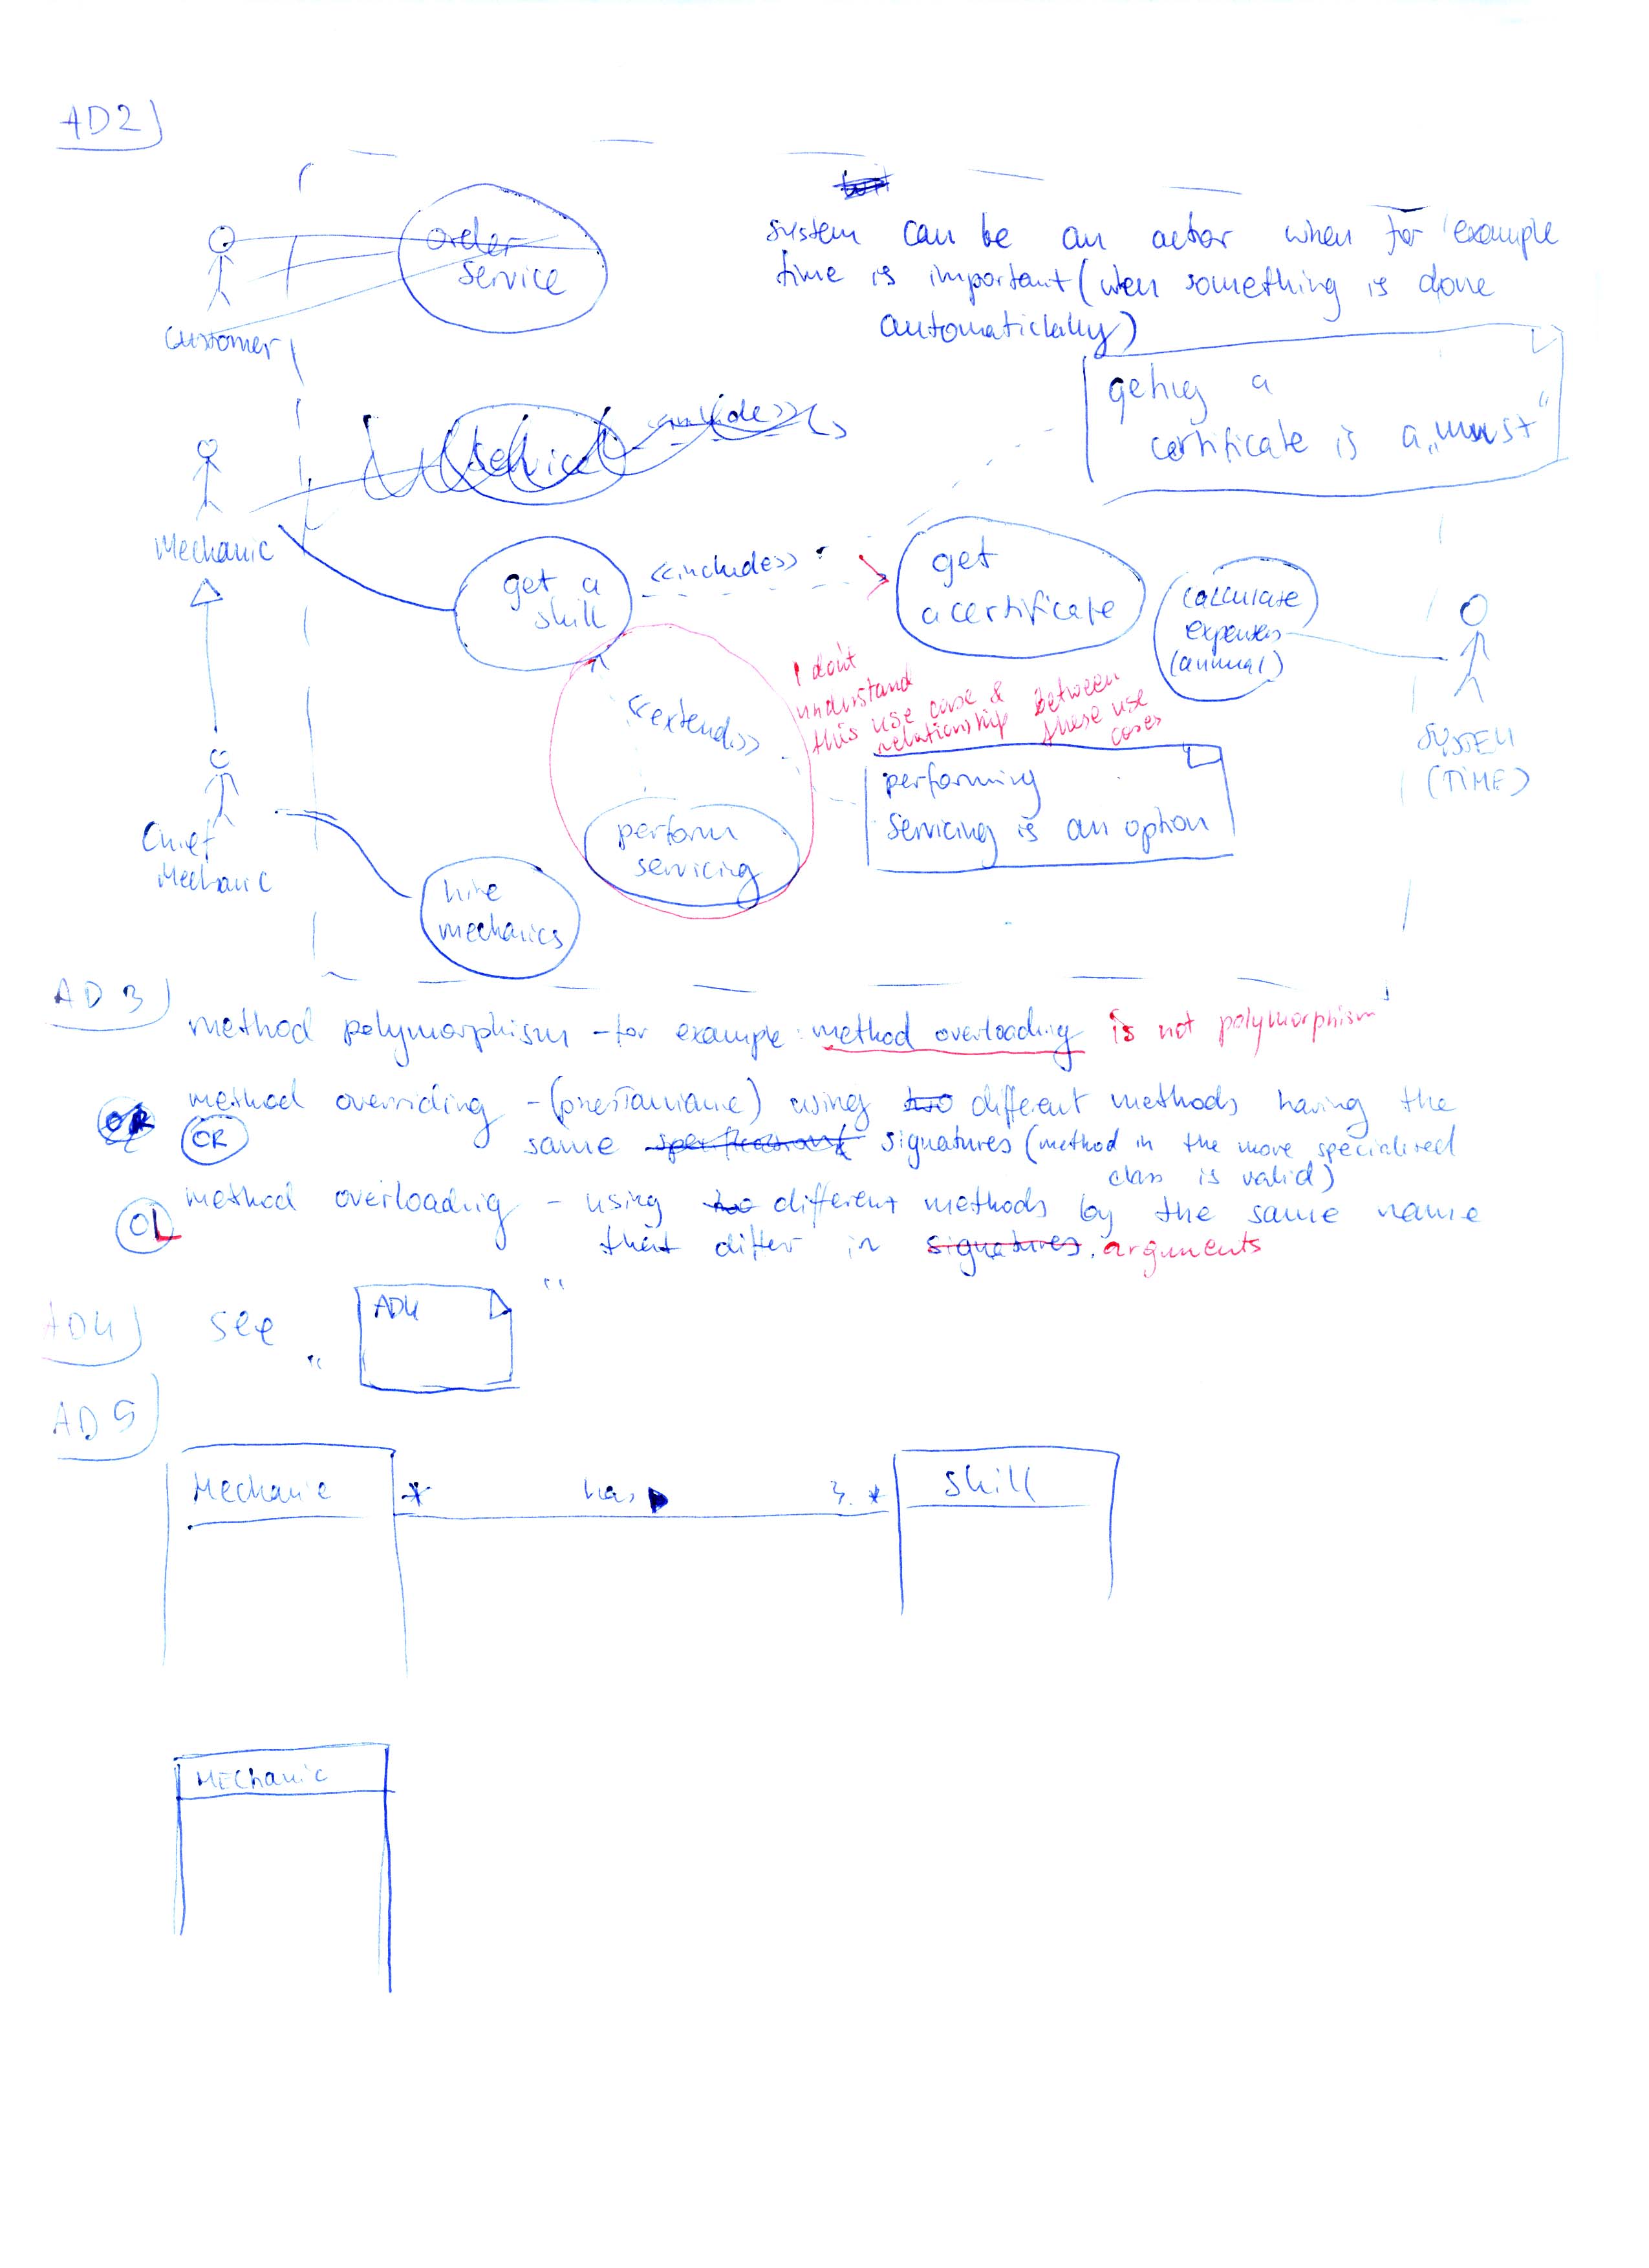 AD2)
system can be an actor when for example
time is important (when something is done
automaticlally)
order
service
Customer
geting a
certificate is a „must"
service
Mechanic
get a
skill
<<includes>>
get
a certificate
calculate
expenses
(annual)
I don't
understand
this use case &
relationship between
these use
cases
<<extends>>
SYSTEM
(TIME)
performing
servicing is an option
perform
servicing
Chief
Mechanic
hire
mechanics
AD3)
method polymorphism - for example: method overloading is not polymorphism
method overriding - (przesłanianie) using two different methods having the
OR
same signatures (method in the more specialized
class is valid)
method overloading - using two different methods by the same name
OL
that differ in signatures. arguments
AD4) see „ AD4 "
AD5
Mechanic * has 3..* Skill
Mechanic